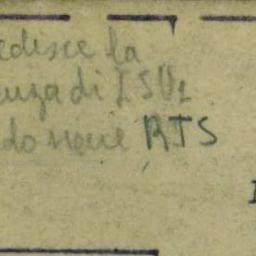 edisce la
enza di ISU1
do neve RTS
I